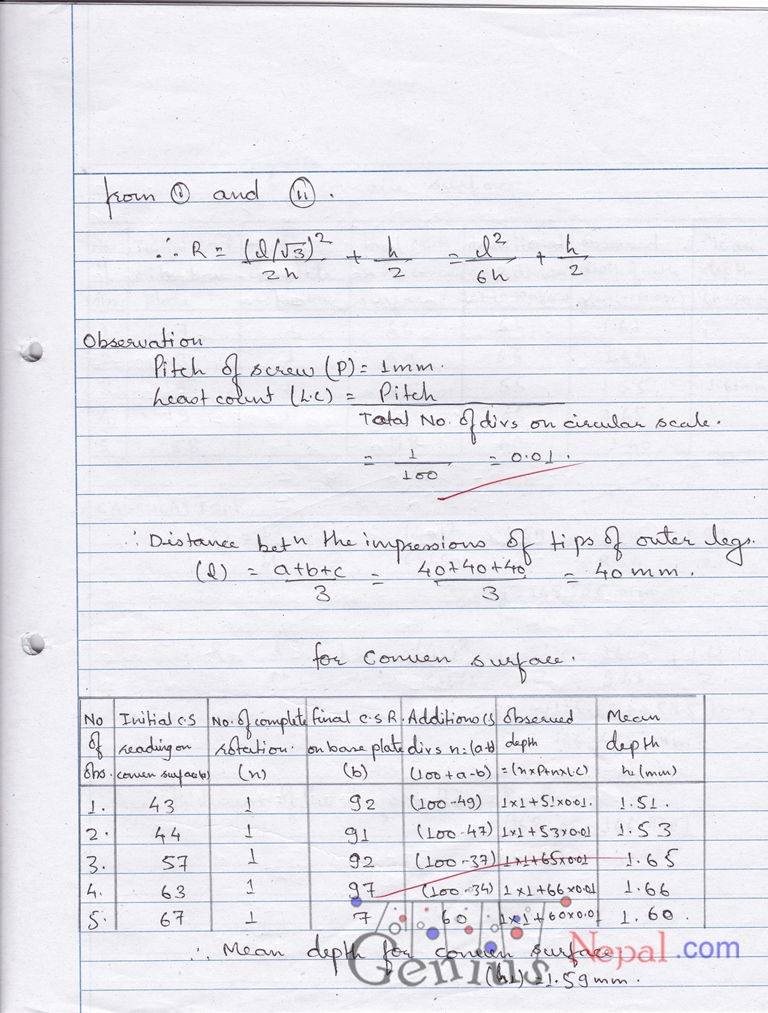 from (i) and (ii).
∴ R = (l/√3)²/2h + h/2 = l²/6h + h/2
Observation
Pitch of screw (P) = 1mm.
Least count (L.C) = Pitch
Total No. of divs on circular scale.
= 1/100 = 0.01.
∴ Distance betn the impressions of tips of outer legs.
(l) = a+b+c/3 = 40+40+40/3 = 40 mm.
for Convex surface.
No of obs. | Initial c.s reading on convex surface(a) | No. of complete rotation. (n) | final c.s R. on base plate (b) | Additional cs divs n=(a-b) (100+a-b) | Observed depth =(n×P+n×L.C) | Mean depth h1 (mm)
1. 43 1 92 (100-49) 1×1+51×001. 1.51.
2. 44 1 91 (100-47) 1×1+53×0.01 1.53
3. 57 1 92 (100-37) 1×1+65×0.01 1.65
4. 63 1 97 (100-34) 1×1+66×0.01 1.66
5. 67 1 7 60 1×1+60×0.01 1.60.
∴ Mean depth for convex surface
(h1) = 1.59mm.
Genius Nepal.com